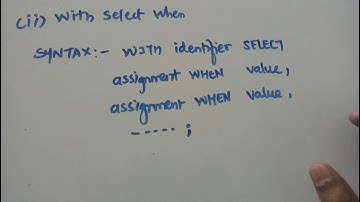 (ii) With select when
SYNTAX:- WITH identifier SELECT
assignment WHEN value,
assignment WHEN value,
----- ;